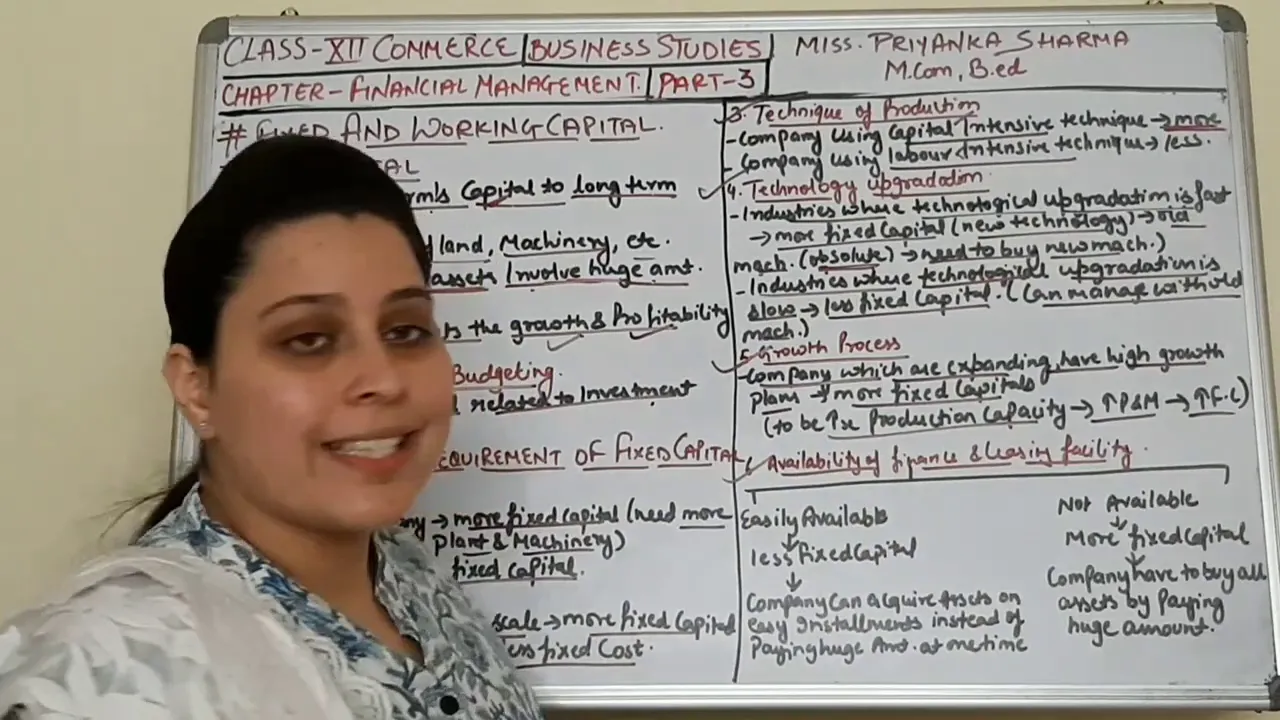 CLASS-XII COMMERCE BUSINESS STUDIES
MISS. PRIYANKA SHARMA
M.Com, B.ed
CHAPTER-FINANCIAL MANAGEMENT. PART-3
# FIXED AND WORKING CAPITAL.
Capital to long term
land, Machinery, etc.
assets Involve huge amt.
the growth & Profitability
Budgeting.
related to Investment
REQUIREMENT OF FIXED CAPITAL
→ more fixed capital (need more
Plant & Machinery)
fixed capital.
scale → more fixed Capital
less fixed Cost.
3. Technique of Production
- Company using Capital Intensive technique → more
- Company using labour Intensive technique → less.
4. Technology upgradation
- Industries where technological upgradation is fast
→ more fixed capital (new technology) → old
mach. (absolute) → need to buy new mach.)
- Industries where technological upgradation is
slow → less fixed Capital. (Can manage with old
mach.)
5. Growth Process
- Company which are expanding, have high growth
Plans → more fixed Capitals
(to be ↑se Production Capacity → ↑P&M → ↑F.C)
Availability of finance & leasing facility.
Easily Available
less fixed Capital
Company Can acquire Assets on
easy Installments instead of
Paying huge Amt. at one time
Not Available
More fixed capital
Company have to buy all
assets by Paying
huge amount.